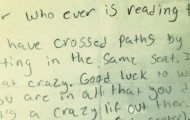 r who ever is reading t
have crossed paths by
ting in the same seat. I
at crazy. Good luck to w
you are in all that you d
's a crazy lif out the